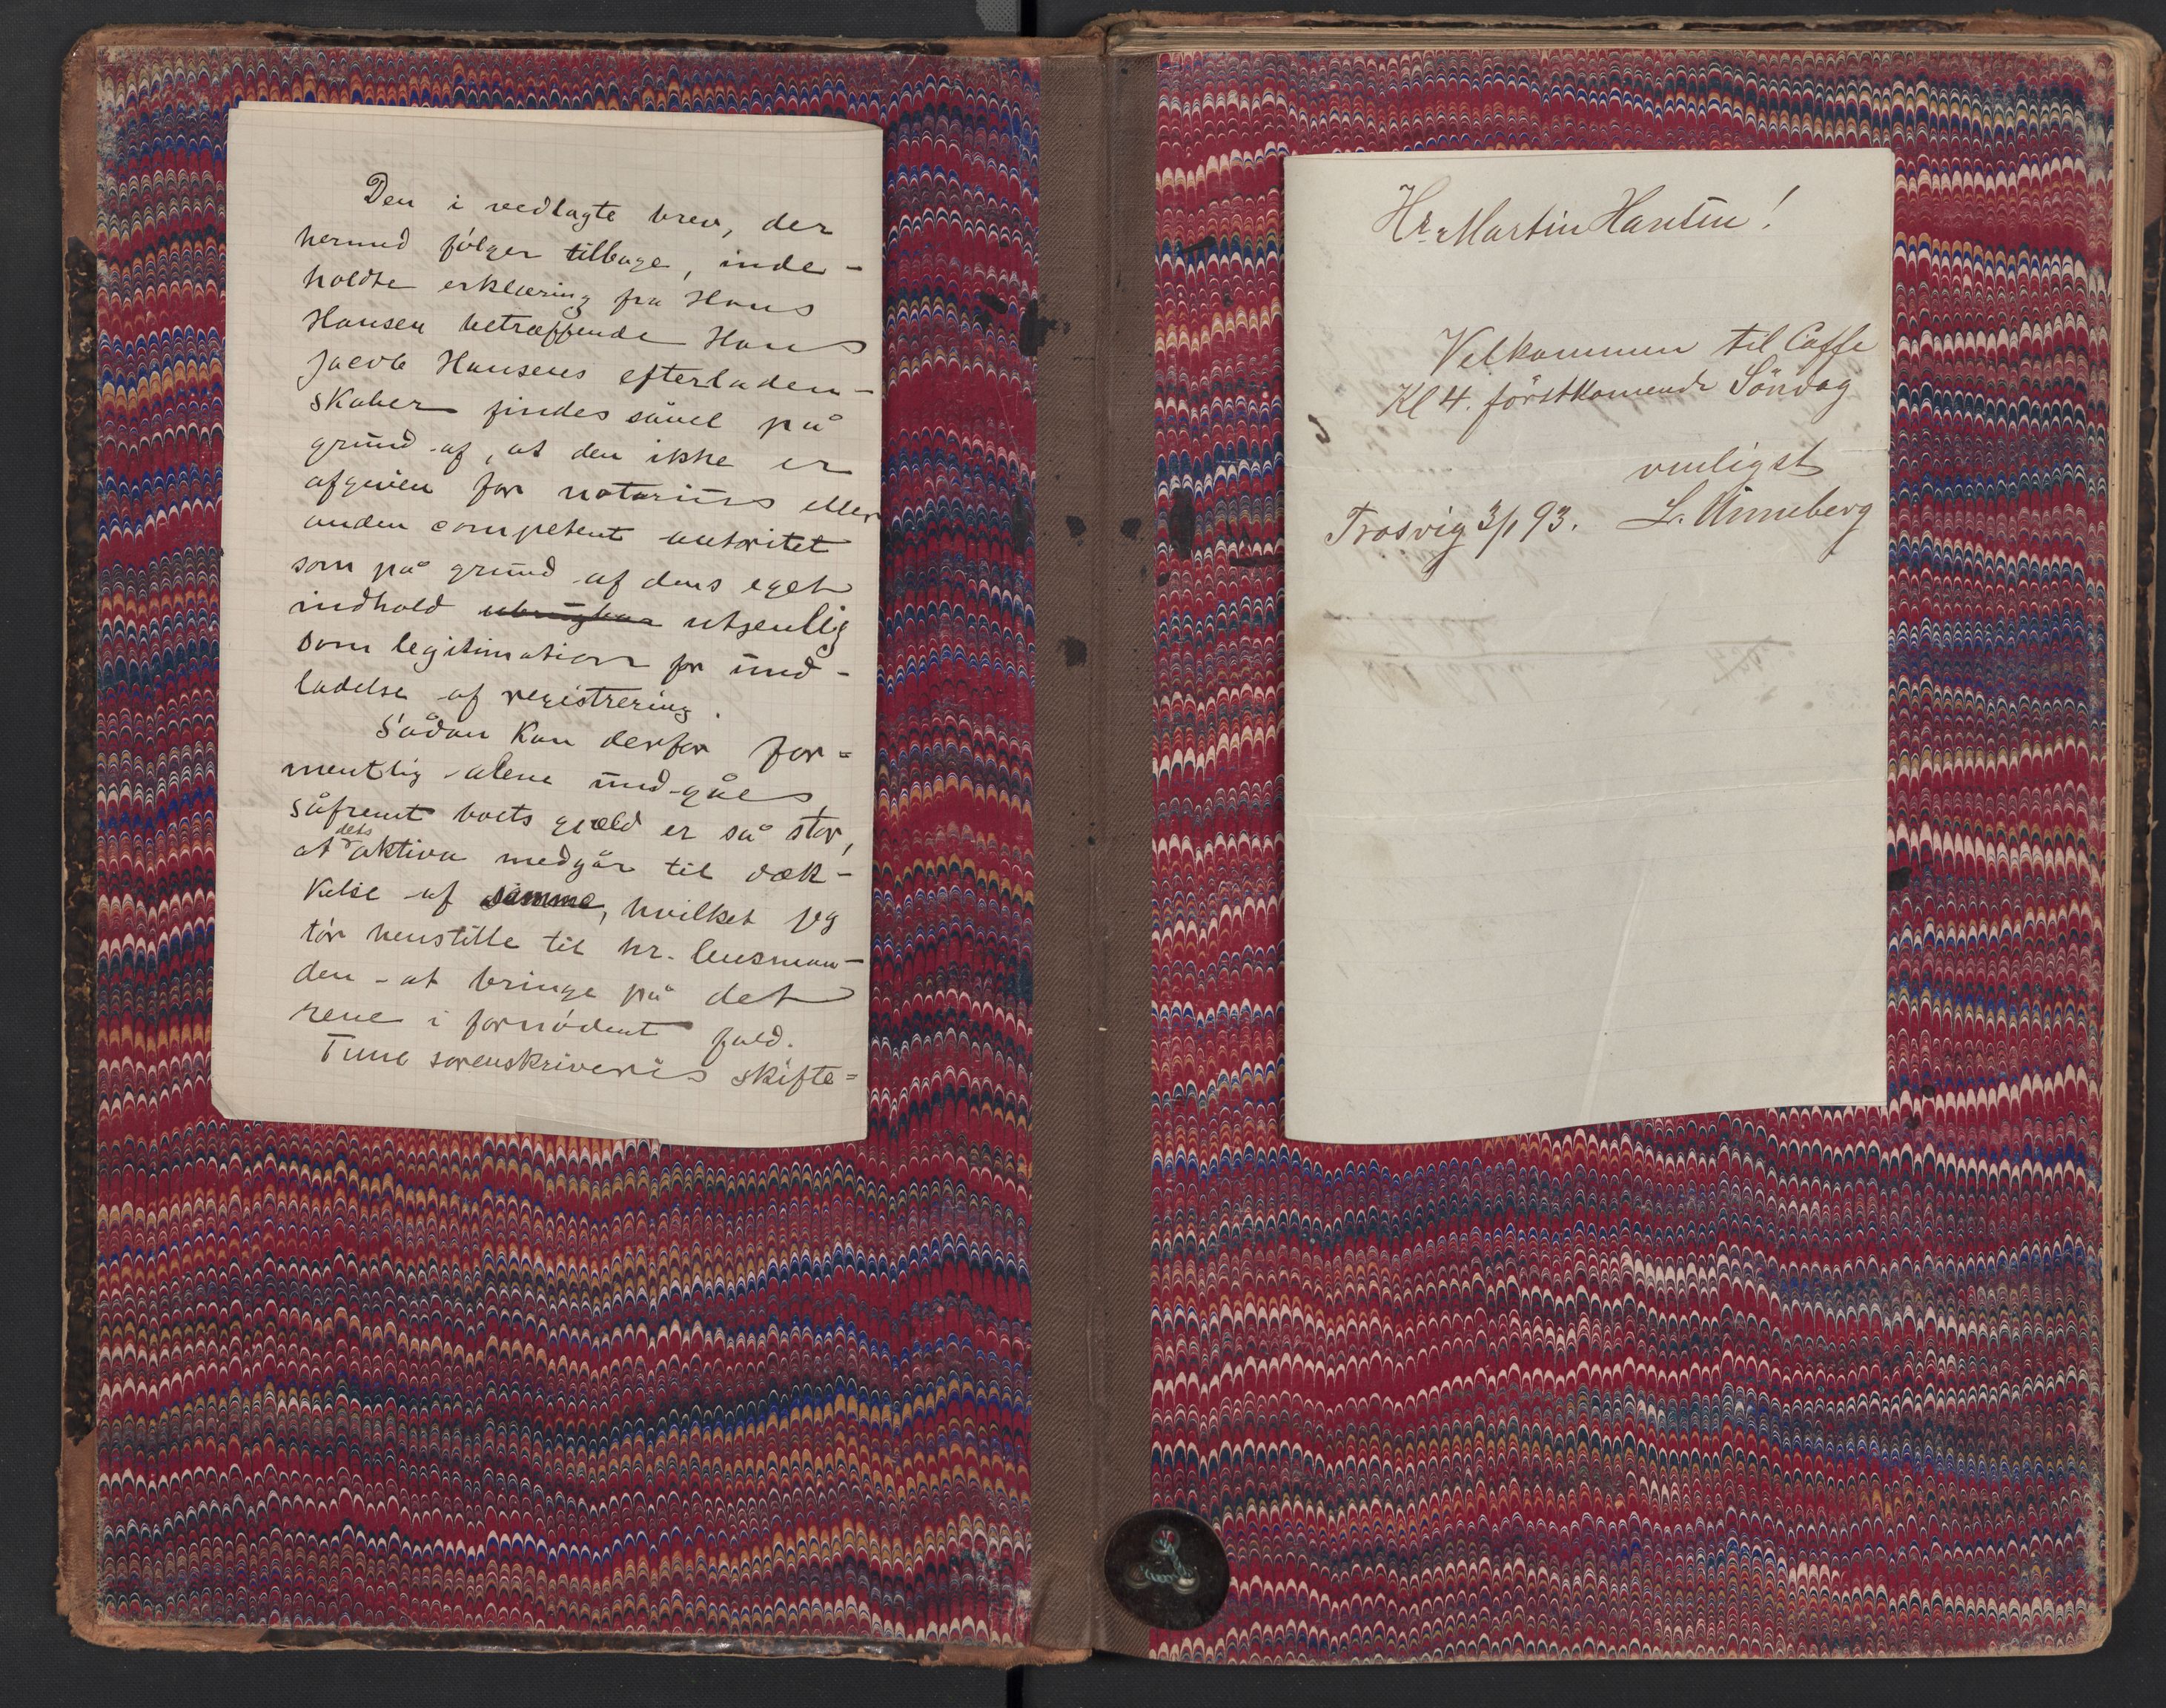 Den i vedlagte brev, der
hermed følger tilbage, inde-
holdte erklæring fra Hans
Hansen betræffende Hans
Jacob Hansens efterladen-
skaber findes såvel på
grund af, at den ikke er
afgiven for notarius eller
anden competent autoritet
som på grund af dens eget
indhold ubrugbar utjenlig
som legitimation for und-
ladelse af registrering.
Sådan kan derfor for=
mentlig alene undgåes,
såfremt boets gjæld er så stor,
at dets aktiva medgår til dæk-
kelse af samme, hvilket jeg
tør henstille til hr. lensman-
den at bringe på det
rene i fornødent fald.
Tune sorenskriveris skifte=
Hr. Martin Hansen!
Velkommen til Caffe
Kl 4. förstkomende Söndag
venligst
Trosvig 3/1 93. L. Unneberg